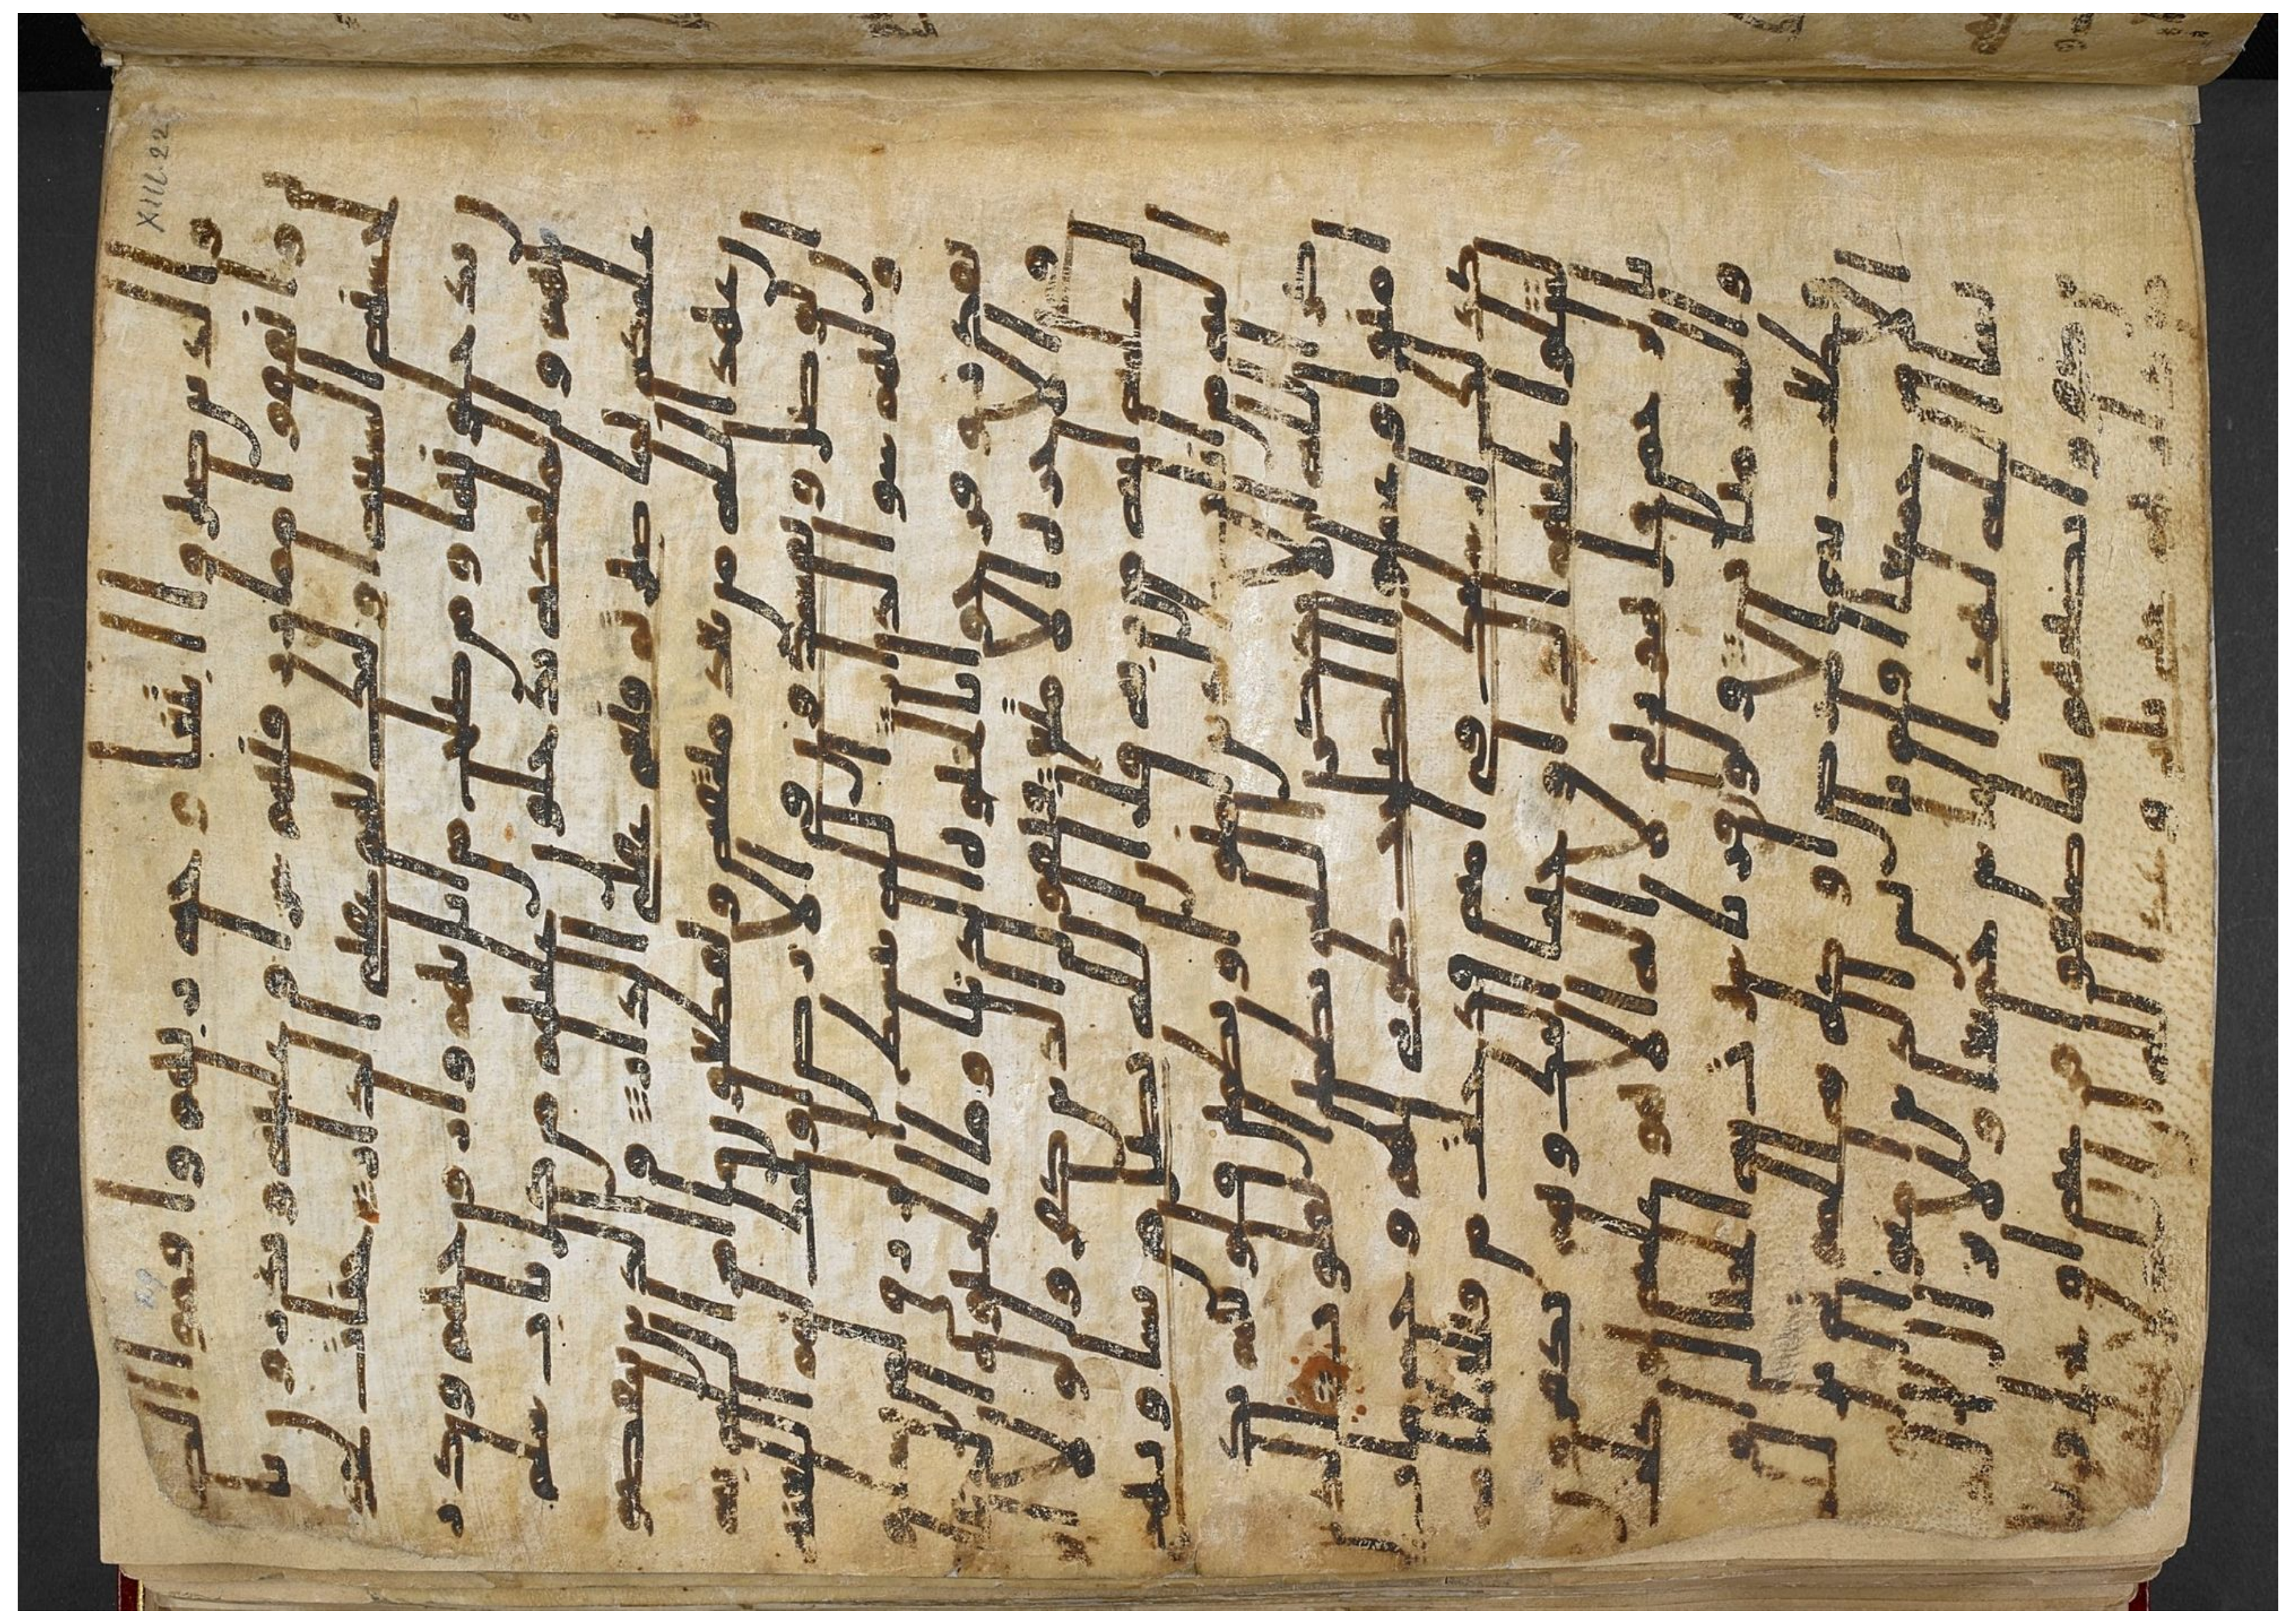 والذين صبروا ابتغا وجه ربهم واقموا الصلو
ه وانفقوا مما رزقنهم سرا وعلنيه ويدرون با
لحسنه السيه اوليك لهم عقبى الدار جنت عد
ن يدخلونها ومن صلح من ابايهم وازوجهم وذريـ
تهم والمليكه يدخلون عليهم من كل باب سلم
عليكم بما صبرتم فنعم عقبى الدار والذين ينقضو
ن عهد الله من بعد ميثقه ويقطعون ما امر الله به
ان يوصل ويفسدون في الارض اوليك لهم اللعنه
ولهم سو الدار الله يبسط الرزق لمن يشا ويقد
ر وفرحوا بالحيوه الدنيا وما الحيوه الدنيا في
الاخره الا متع ويقول الذين كفروا لولا ا
نزل عليه ايه من ربه قل ان الله يضل من يشا ويهدي
اليه من اناب الذين امنوا وتطمين قلوبهم بذ
كر الله الا بذكر الله تطمين القلوب الذين
امنوا وعملوا الصلحت طوبى لهم وحسن ماب
كذلك ارسلنك في امه قد خلت من قبلها امم
لتتلوا عليهم الذي اوحينا اليك وهم يكفرون
بالرحمن قل هو ربي لا اله الا هو عليه توكلت
واليه متاب ولو ان قرنا سيرت به الجبال او
قطعت به الارض او كلم به الموتى بل لله
الامر جميعا افلم يايس الذين امنوا ان لو
يشا الله لهدى الناس جميعا ولا يزال الذين
كفروا تصيبهم بما صنعوا قارعه او تحل قريبا